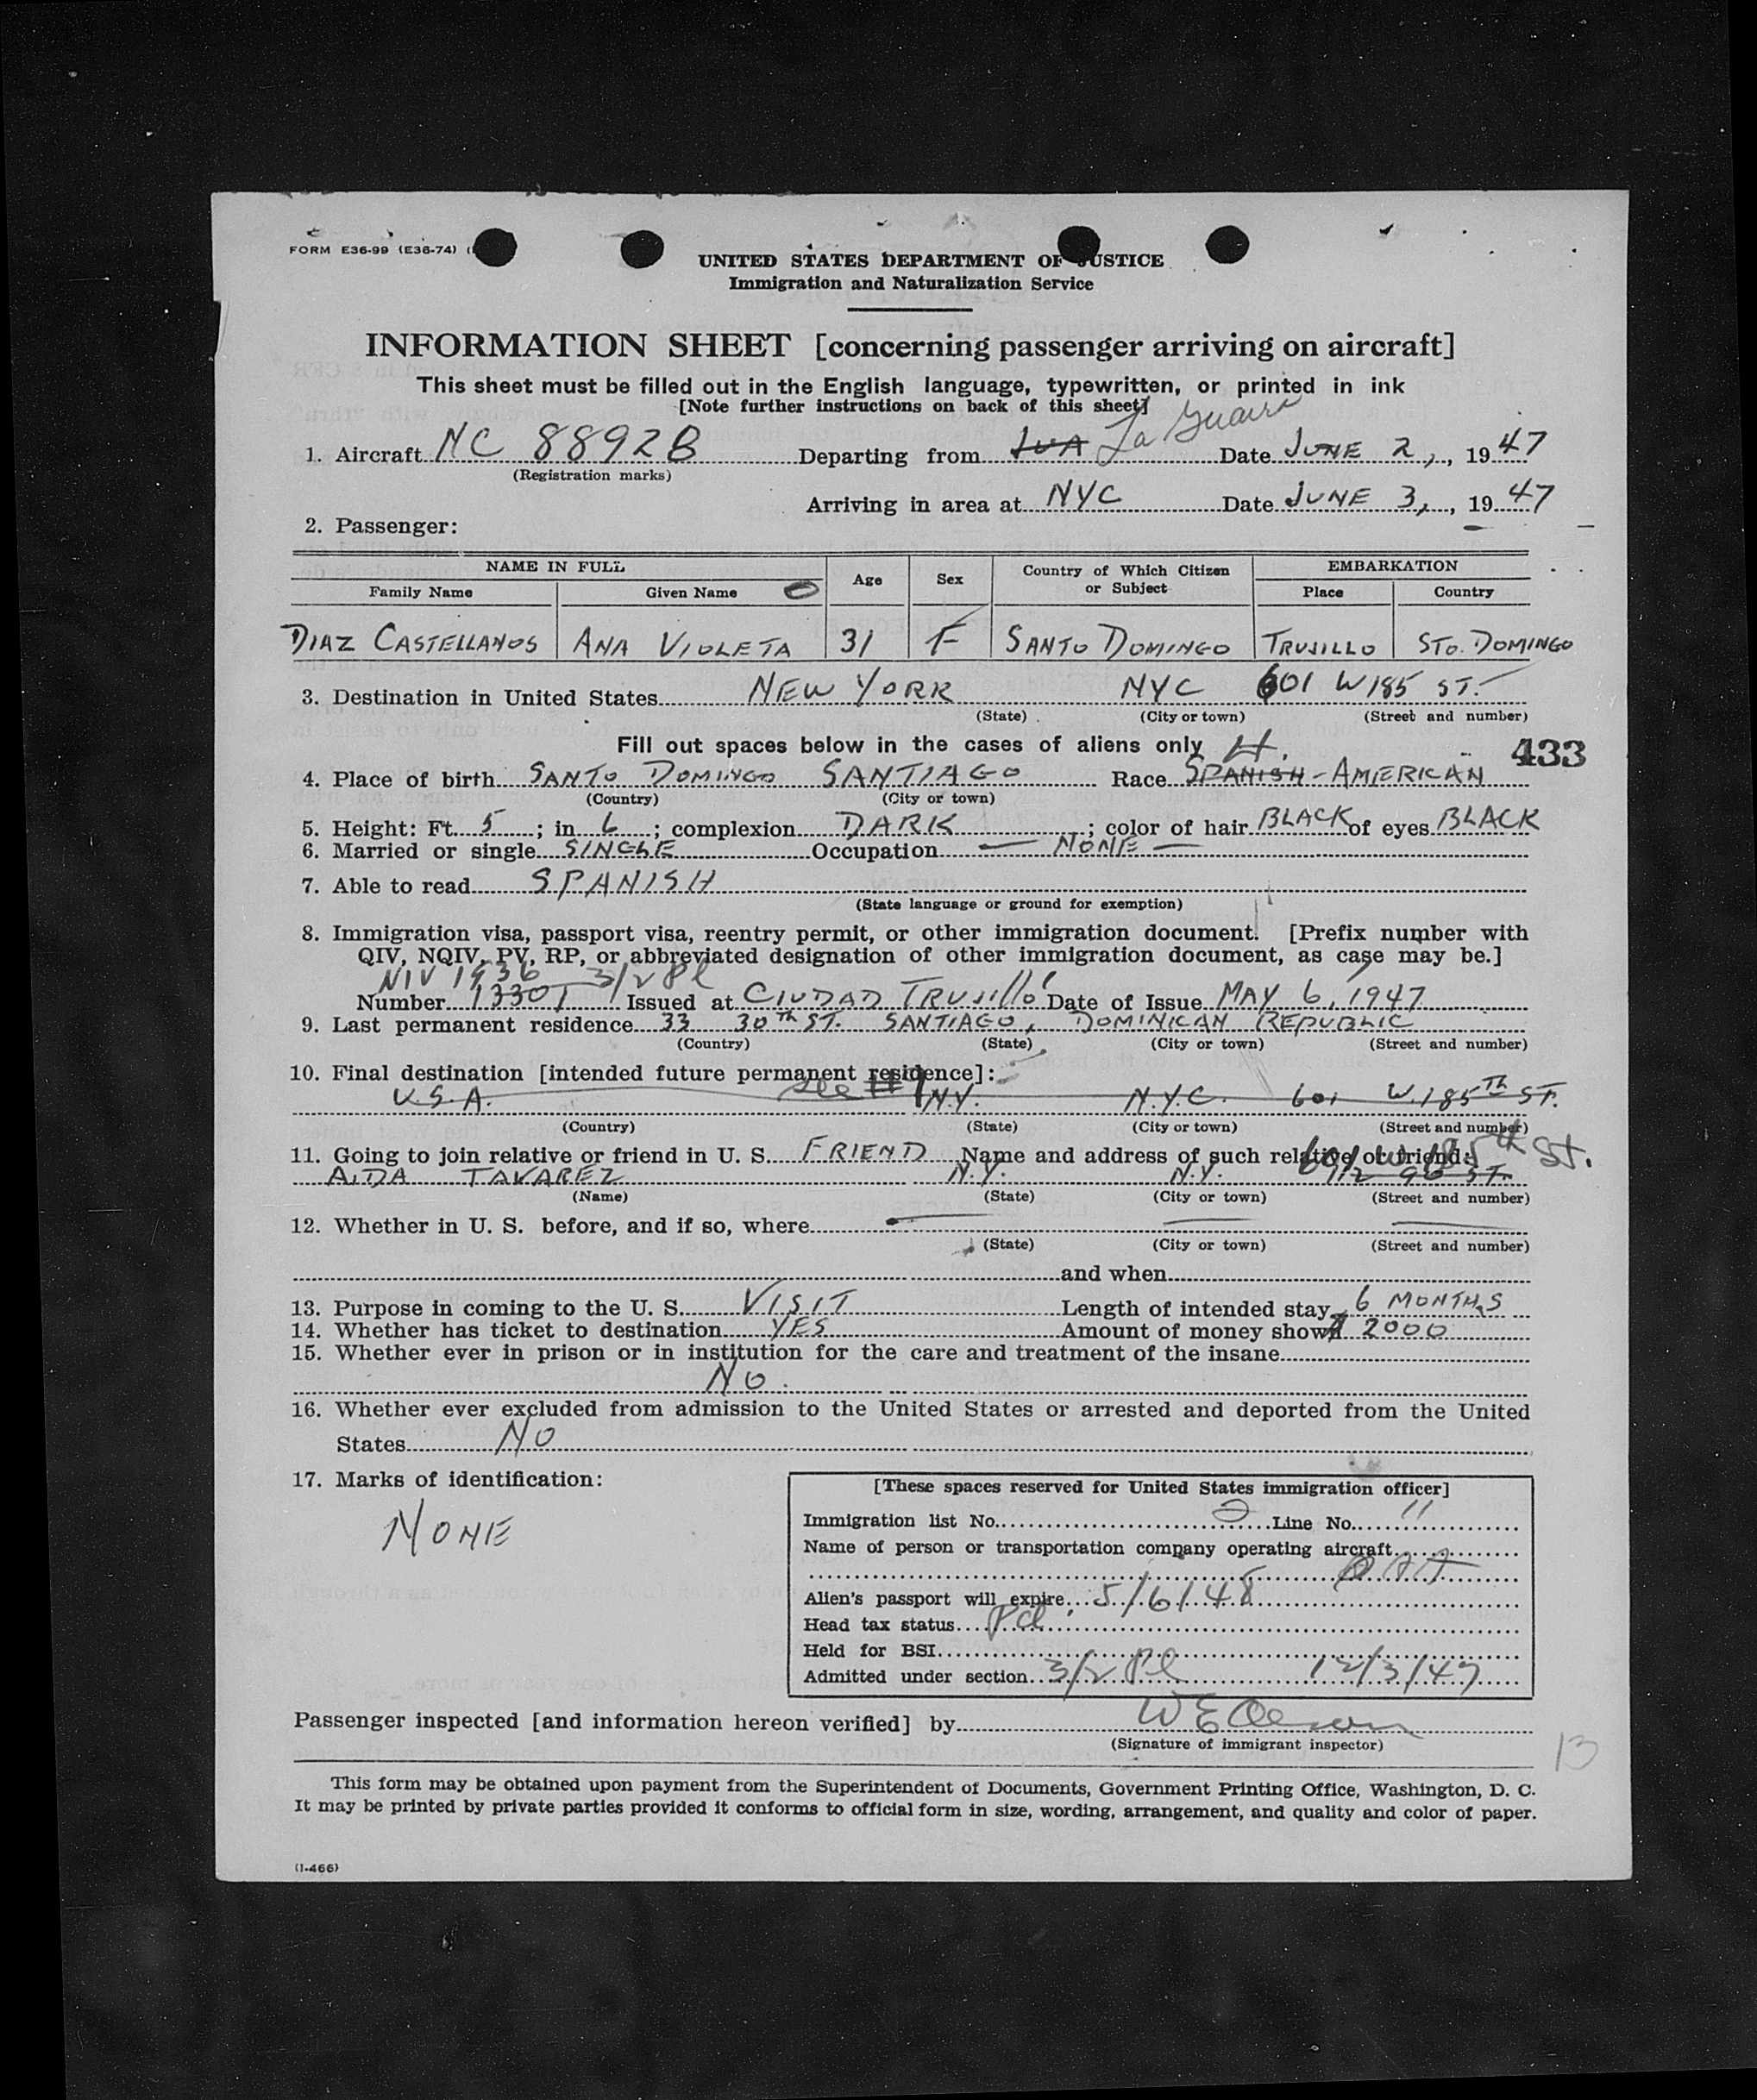 FORM E36-99 (E36-74) (
UNITED STATES DEPARTMENT OF JUSTICE
Immigration and Naturalization Service
INFORMATION SHEET [concerning passenger arriving on aircraft]
This sheet must be filled out in the English language, typewritten, or printed in ink
[Note further instructions on back of this sheet]
1. Aircraft NC 88928 Departing from La Guaira Date JUNE 2, 1947
(Registration marks)
Arriving in area at NYC Date JUNE 3, 1947
2. Passenger:
NAME IN FULL Age Sex Country of Which Citizen or Subject EMBARKATION
Family Name Given Name Place Country
DIAZ CASTELLANOS ANA VIOLETA 31 F SANTO DOMINGO TRUJILLO STO. DOMINGO
3. Destination in United States NEW YORK NYC 601 W 185 ST.
(State) (City or town) (Street and number)
Fill out spaces below in the cases of aliens only 433
4. Place of birth SANTO DOMINGO SANTIAGO Race SPANISH-AMERICAN
(Country) (City or town)
5. Height: Ft. 5; in 6; complexion DARK; color of hair BLACK of eyes BLACK
6. Married or single SINGLE Occupation — NONE —
7. Able to read SPANISH
(State language or ground for exemption)
8. Immigration visa, passport visa, reentry permit, or other immigration document. [Prefix number with
QIV, NQIV, PV, RP, or abbreviated designation of other immigration document, as case may be.]
NIV 1936 3/2 Pl
Number 13301 Issued at CIUDAD TRUJILLO Date of Issue MAY 6, 1947
9. Last permanent residence 33 30TH ST. SANTIAGO, DOMINICAN REPUBLIC
(Country) (State) (City or town) (Street and number)
10. Final destination [intended future permanent residence]:
see #9
U.S.A. N.Y. N.Y.C. 601 W. 185TH ST.
(Country) (State) (City or town) (Street and number)
11. Going to join relative or friend in U. S. FRIEND Name and address of such relative or friend: 601 W 185th St.
AIDA TAVAREZ N.Y. N.Y. ST.
(Name) (State) (City or town) (Street and number)
12. Whether in U. S. before, and if so, where
(State) (City or town) (Street and number)
and when
13. Purpose in coming to the U. S. VISIT Length of intended stay 6 MONTHS
14. Whether has ticket to destination YES Amount of money shown $ 2000
15. Whether ever in prison or in institution for the care and treatment of the insane
NO.
16. Whether ever excluded from admission to the United States or arrested and deported from the United
States NO
17. Marks of identification:
NONE
[These spaces reserved for United States immigration officer]
Immigration list No. 2 Line No. 11
Name of person or transportation company operating aircraft
Alien's passport will expire 5/6/48
Head tax status Pd
Held for BSI
Admitted under section 3/2 Pl 12/3/47
Passenger inspected [and information hereon verified] by
(Signature of immigrant inspector)
13
This form may be obtained upon payment from the Superintendent of Documents, Government Printing Office, Washington, D. C.
It may be printed by private parties provided it conforms to official form in size, wording, arrangement, and quality and color of paper.
(I-466)